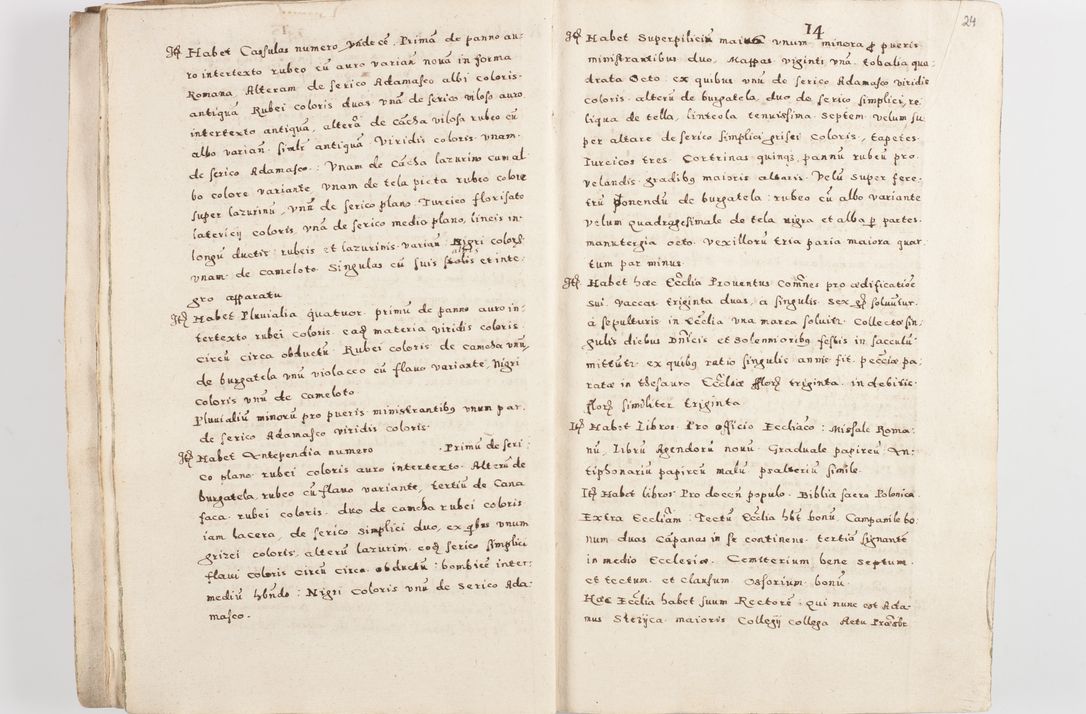 Itẽ Habet Cassulas numero vndecẽ. Primã de panno au-
ro intertexto rubeo cũ auro varian nouã in forma
Romana. Alteram de serico Adamasco albi coloris
antiquã Rubei coloris duas vnã de serico viloso auro
intertexto antiquã, alterã de cãcha vilosa rubeo cũ
albo varian. simlr antiquã Viridis coloris vnam.
de serico Adamasco: Vnam de cãcha lazurino cum al
bo colore variante, vnam de tela picta rubeo colore
super lazurinũ, vnũ de serico plano Turcico florisato
latericij coloris, vnã de serico medio plano, lineis in
longũ ductis rubeis et lazurinis varian Nigri coloris
vnam de cameloto. Singulas cũ suis stolis et inte-
gro apparatu
Itẽ Habet Pluuialia quatuor. primũ de panno auro in-
tertexto rubei coloris. eaq materia viridis coloris
circũ circa obductũ. Rubei coloris de camcha vnũ
de burgatela vnũ violaceo cũ flauo variante, Nigri
coloris vnũ de cameloto
Pluuialiũ minorũ pro pueris ministrantibq vnum par
de serico Adamasco viridis coloris
Itẽ Habet Antependia numero . Primũ de seri:
co plano rubei coloris auro intertexto. Alterũ de
burgatela rubeo cũ flauo variante, tertiũ de Cana
faca rubei coloris. duo de camcha rubei coloris
iam lacera, de serico simplici duo, ex qbus vnum
grizei coloris, alterũ lazurim. eoq serico simplici
flaui coloris circũ circa obductũ: bombice inter-
mediũ hñdo: Nigri coloris vnũ de serico Ada-
masco.
14
24
Itẽ Habet Superpiliciũ maius vnum minora p pueris
ministrantibus duo, Mappas viginti vnã. tobalia qua-
drata Octo. ex quibus vnũ de serico Adamasco viridis
coloris alterũ de burgatela, duo de serico simplici, re
liqua de tella, linteola tenuissima Septem. velum su
per altare de serico simplici grisei coloris, tapetes
Turcicos tres Cortrinas quinqz, pannũ rubeũ pro
velandis gradibq maioris altaris. Velũ super fere-
trũ ponendũ de burgatela rubeo cũ albo variante
velum quadragesimale de tela nigra et alba p partes.
manutergia octo. vexillorũ tria paria maiora quar
tum par minus.
Itẽ. Habet hæc Ecclia Prouentus Comẽs pro ædificatiõe
sui. vaccas triginta duas, a singulis sex soluutur.
a sepulturis in Ecclia vna marca soluitr. Collecta sin
gulis diebus Dñicis et Solennioribq festis in sacculũ
mittũtr. ex quibq ratio singulis annis fit. pecciæ pa-
ratæ in thesauro Ecclsiæ florẽ triginta. in debitis
florẽ similiter triginta
Itẽ Habet Libros Pro officio Eccliaco: Missale Roma
nũ, Librũ Agendorũ nouũ. Graduale papireũ An-
tiphonariũ papireũ malũ psalteriũ simile.
Itẽ Habet libros Pro docen populo. Biblia sacra Polonica.
Extra Eccliam: Tectũ Ecclia hbt bonũ. Campanile bo
num duas Cãpanas in se continens. tertia signante
in medio Ecclesiæ. Cemiterium bene septum.
et tectum. et clausum Ossorium bonũ.
Hæc Ecclia habet suum Rectorẽ qui nunc est Ada-
mus Strzyca. maioris Collegij collega Actu Præsbr